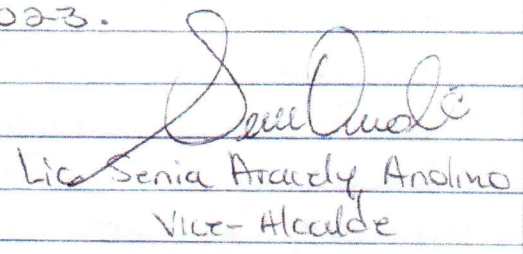 023.
Lic Senia Aracely Andino
Vice-Alcalde